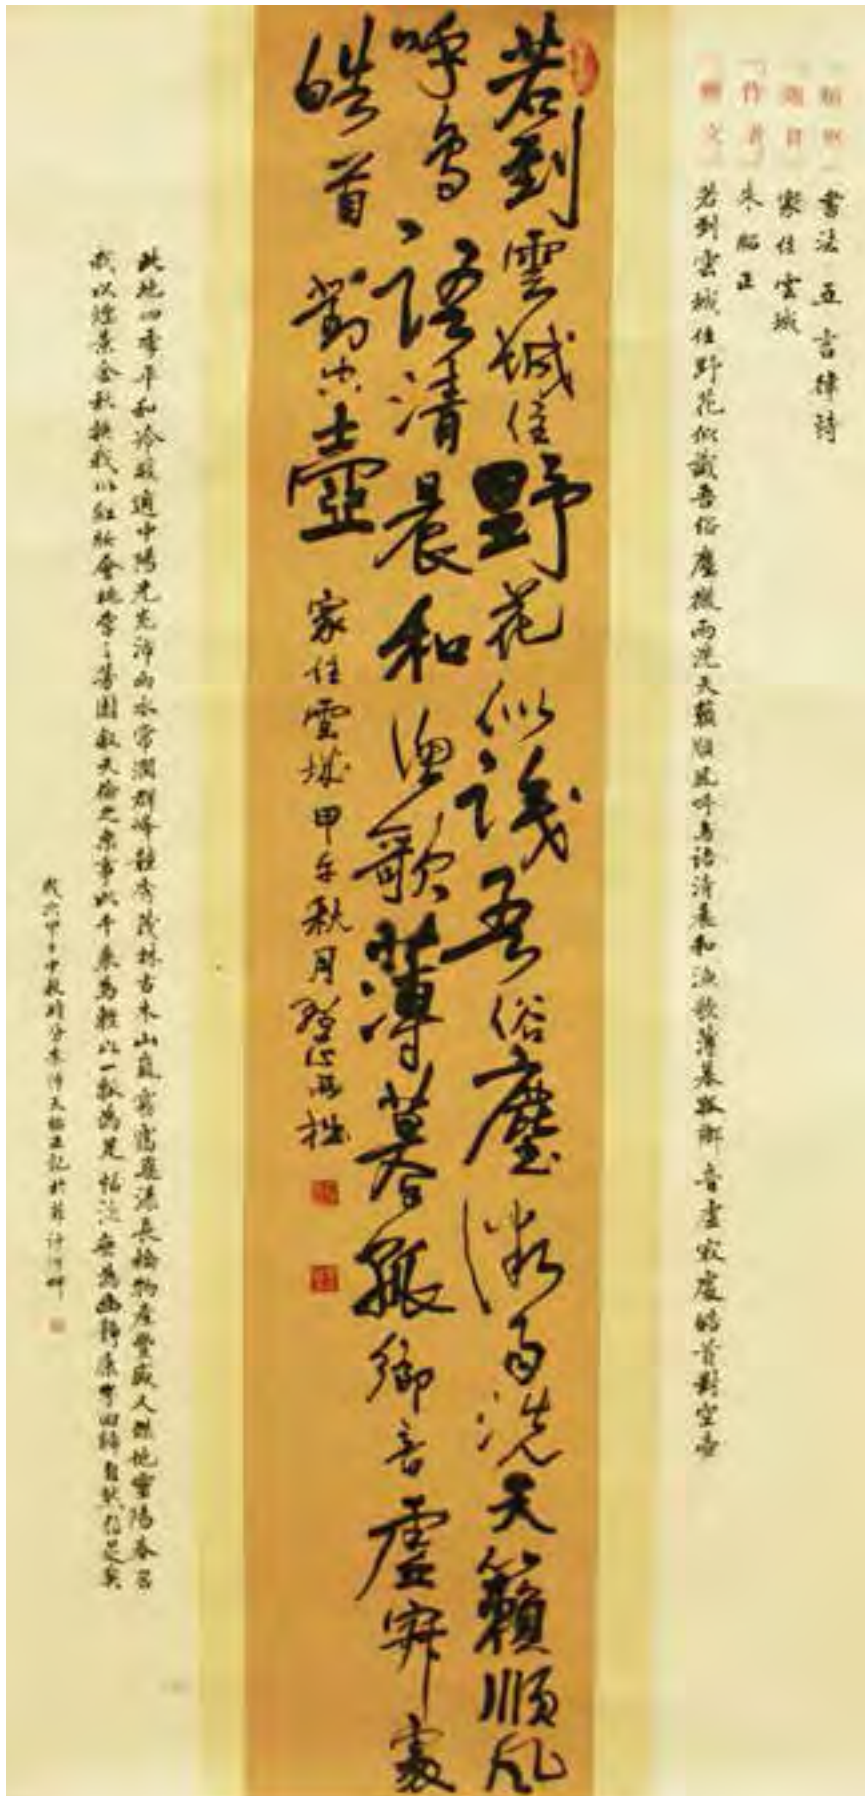 「類型」書法 五言律詩
「題目」家住雲城
「作者」朱 正
「釋文」若到雲城住野花似識吾俗塵微雨洗天籟順風呼鳥語清晨和漁歌薄暮孤鄉音虛寂處皓首對空壺
若到雲城住野花似識吾俗塵微雨洗天籟順風
呼鳥語清晨和漁歌薄暮孤鄉音虛寂處
皓首對空壺
家住雲城甲午秋月
此地四季平和冷暖適中陽光充沛雨水常潤群峰競秀茂林古木山嵐霧靄物產豐盛人傑地靈陽春召
我以煙景金秋換我以紅妝會桃李之芳園敘天倫之樂事以一瓢為足恬淡無為幽靜康寧回歸自然於是矣
歲次甲午中秋時分 正記於